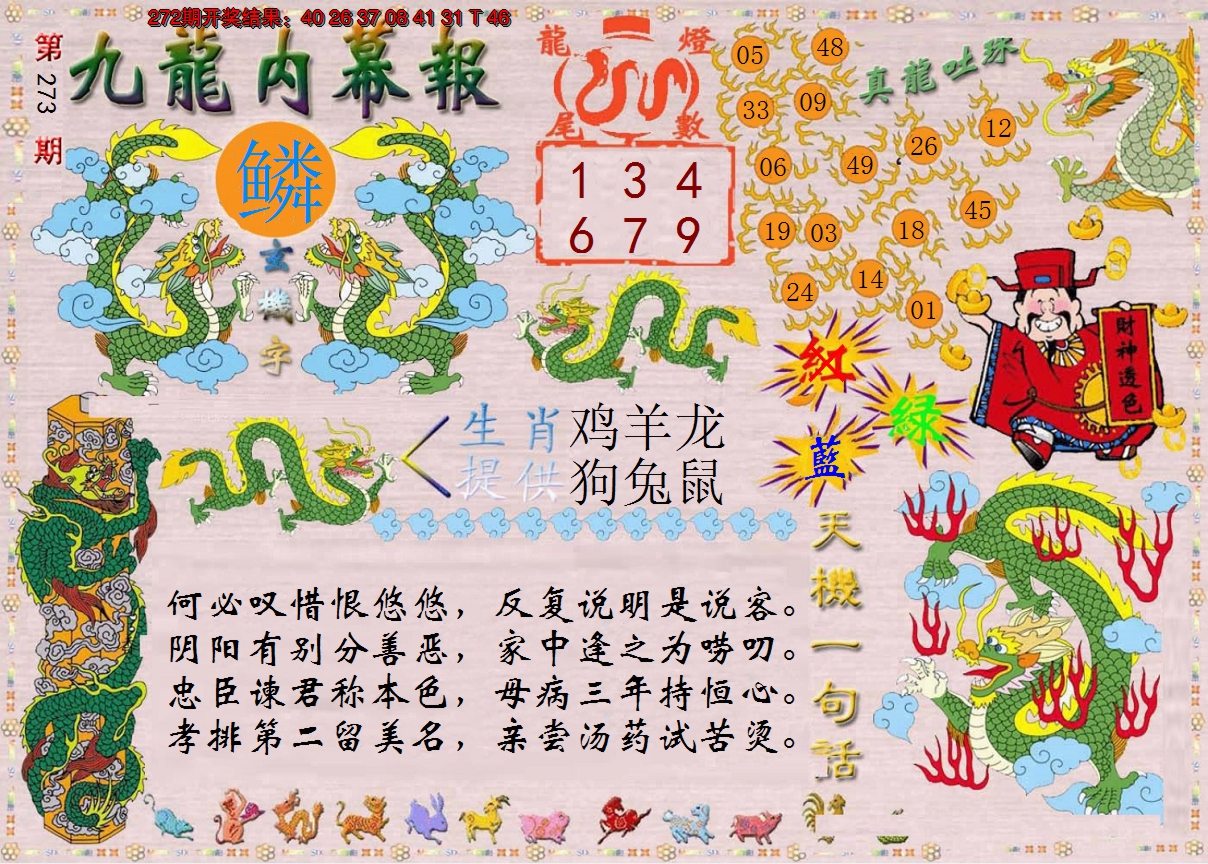 272期开奖结果：40 26 37 08 41 31 T 46
第273期
九龍内幕報
鳞
玄機字
龍燈尾數
1 3 4
6 7 9
真龍吐珠
05 48
33 09
26 12
06 49
45
19 03 18
24 14
01
財神透色
紅
綠
藍
生肖 鸡羊龙
提供 狗兔鼠
天機一句話
何必叹惜恨悠悠，反复说明是说客。
阴阳有别分善恶，家中逢之为唠叨。
忠臣谏君称本色，母病三年持恒心。
孝排第二留美名，亲尝汤药试苦烫。